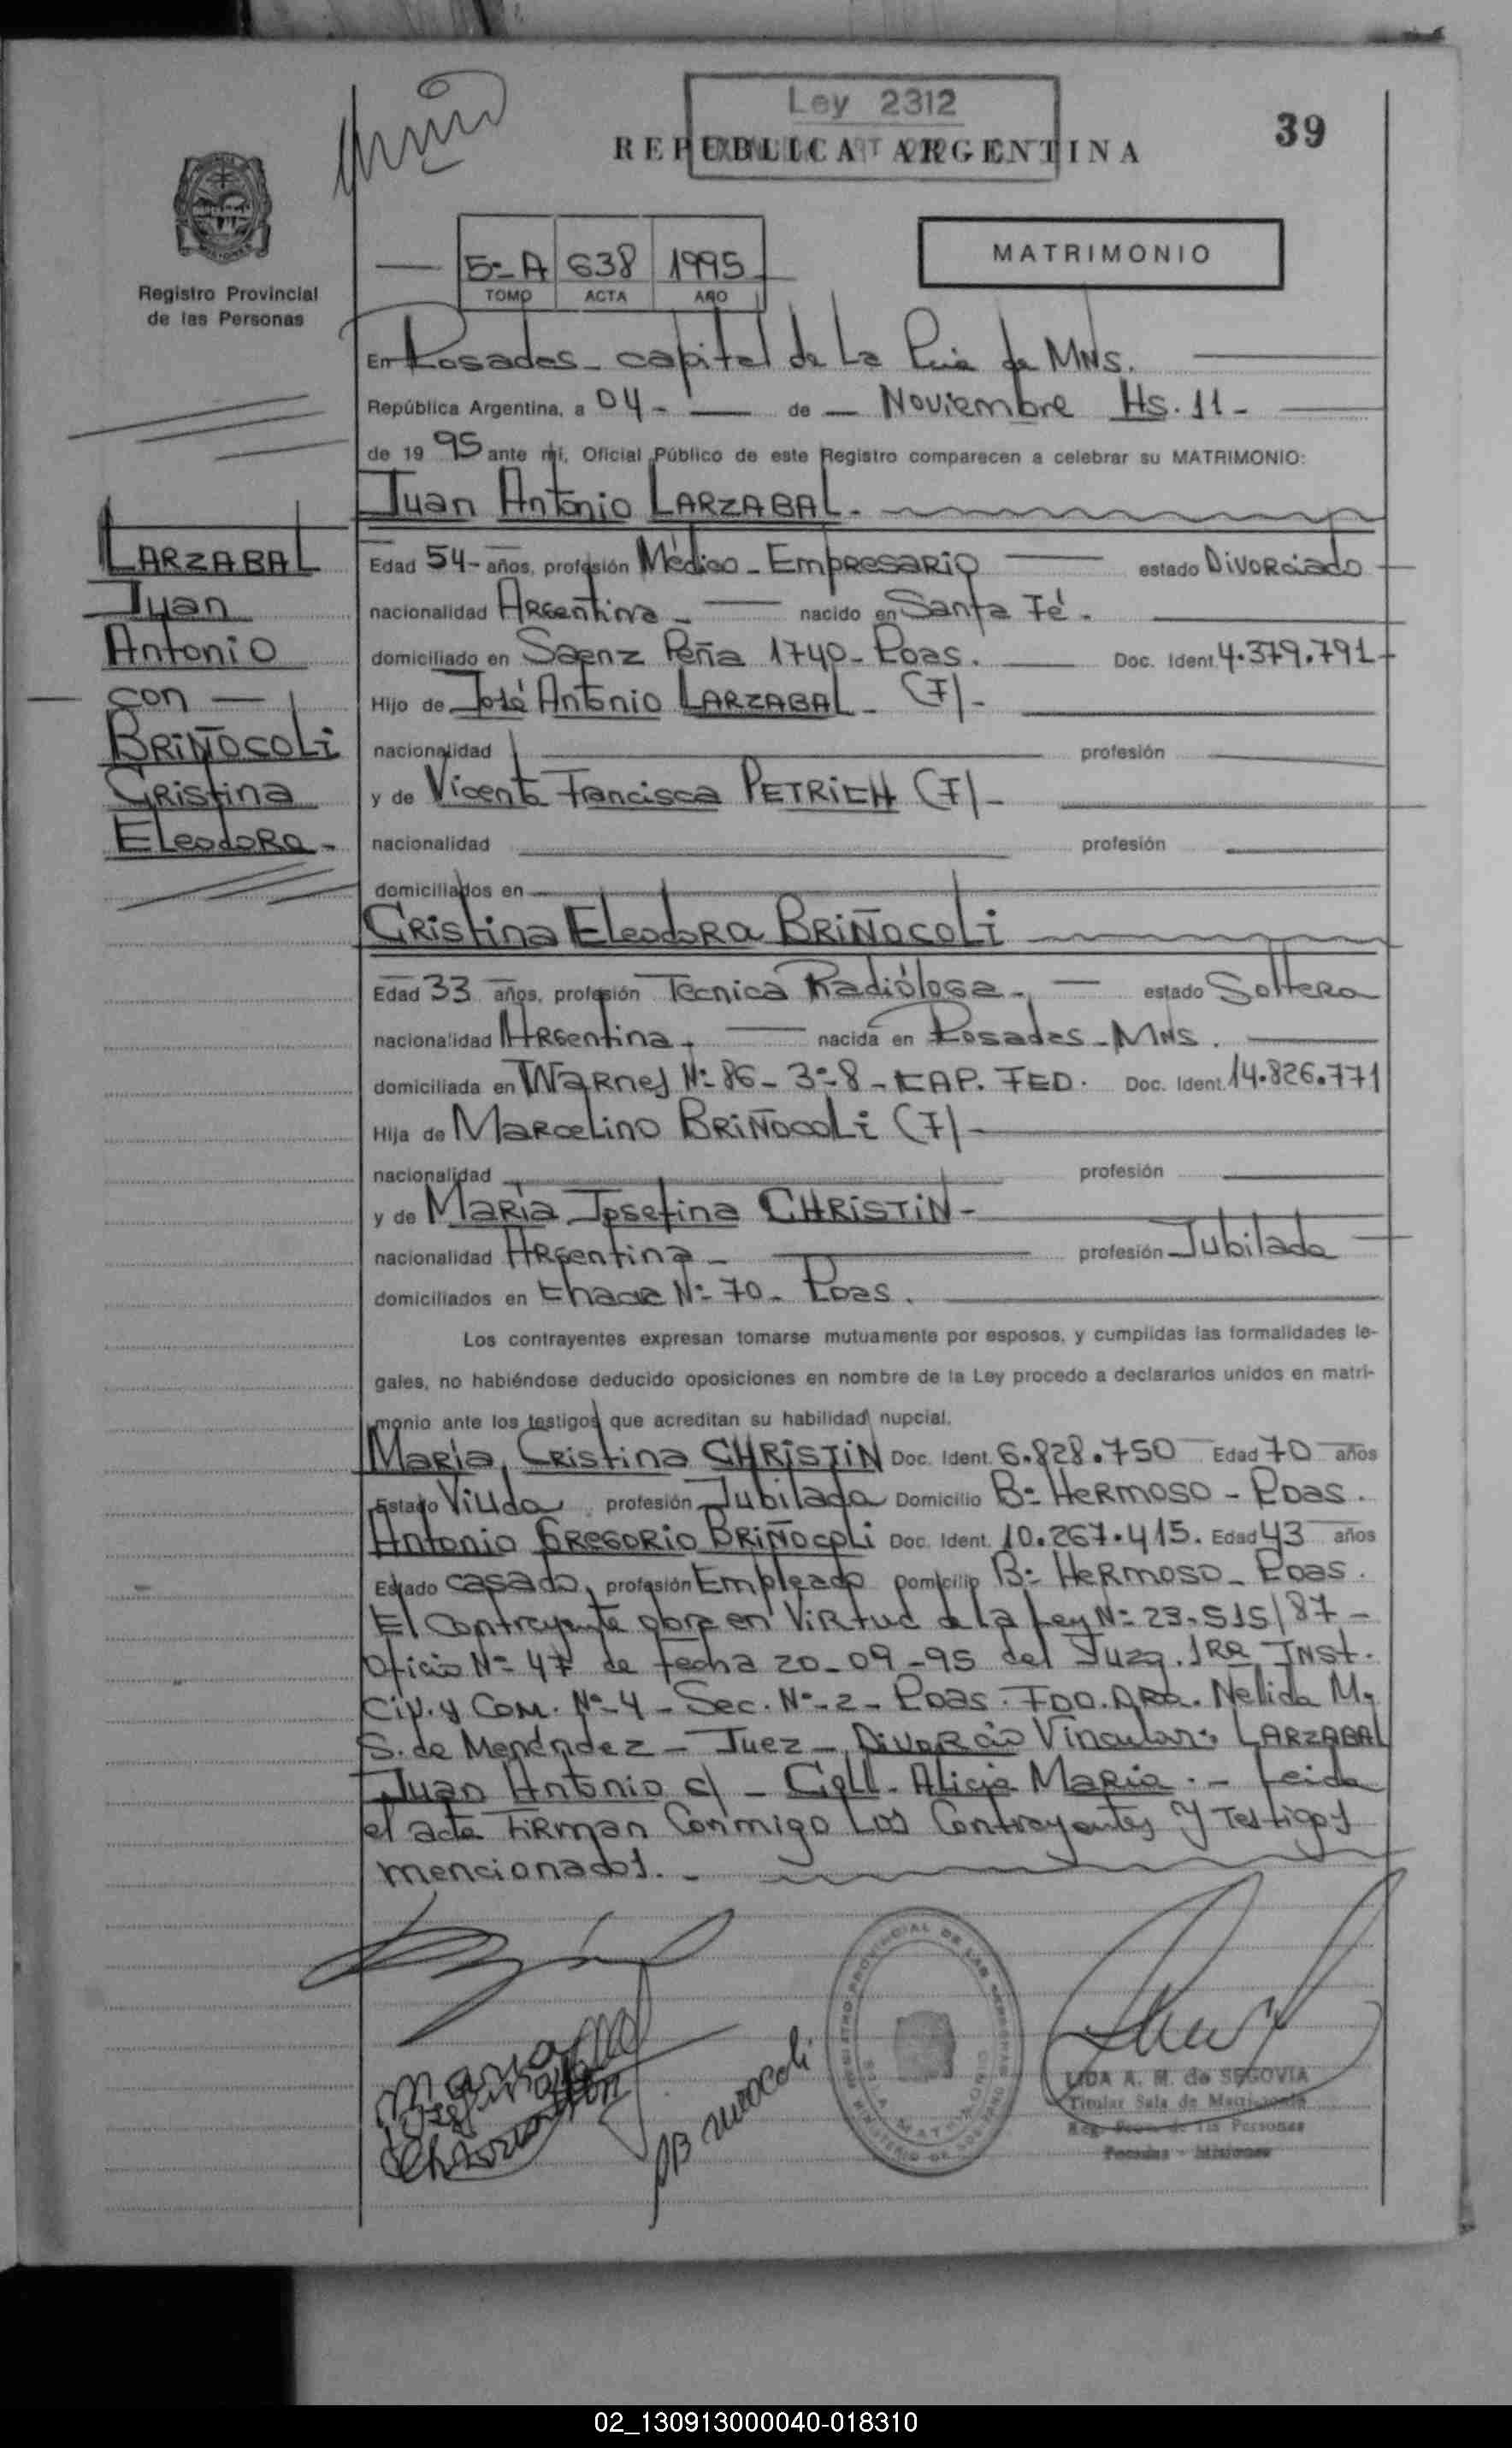 Ley 2312
REPUBLICA ARGENTINA
39
5º A 638 1995
TOMO ACTA AÑO
MATRIMONIO
Registro Provincial
de las Personas
En Posadas - capital de La Pcia de MNS.
República Argentina, a 04 - de Noviembre Hs. 11 -
de 19 95 ante mi, Oficial Público de este Registro comparecen a celebrar su MATRIMONIO:
Juan Antonio LARZABAL -
LARZABAL
Juan
Antonio
con
BRIÑOCOLI
Cristina
Eleodora -
Edad 54 - años, profesión Médico - Empresario estado Divorciado
nacionalidad Argentina - nacido en Santa Fé -
domiciliado en Saenz Peña 1740 - Pdas. Doc. Ident. 4.379.791
Hijo de José Antonio LARZABAL - (F) -
nacionalidad profesión
y de Vicenta Francisca PETRICH (F) -
nacionalidad profesión
domiciliados en
Cristina Eleodora BRIÑOCOLI
Edad 33 años, profesión Tecnica Radióloga - estado Soltera
nacionalidad Argentina - nacida en Posadas - MNS.
domiciliada en Warnes Nº 86 - 3º 8 - CAP. FED. Doc. Ident. 14.826.771
Hija de Marcelino BRIÑOCOLI (F) -
nacionalidad profesión
y de María Josefina CHRISTIN -
nacionalidad Argentina - profesión Jubilada
domiciliados en Chacra Nº 70 - Pdas.
Los contrayentes expresan tomarse mutuamente por esposos, y cumplidas las formalidades le-
gales, no habiéndose deducido oposiciones en nombre de la Ley procedo a declararlos unidos en matri-
monio ante los testigos que acreditan su habilidad nupcial.
María Cristina CHRISTIN Doc. Ident. 6.828.750 Edad 70 años
Estado Viuda profesión Jubilada Domicilio Bº Hermoso - Pdas.
Antonio Gregorio Briñocoli Doc. Ident. 10.267.415. Edad 43 años
Estado casado, profesión Empleado Domicilio Bº Hermoso - Pdas.
El contrayente obra en Virtud de la Ley Nº 23.515/87 -
Oficio Nº 47 de fecha 20-09-95 del Juzg. 1ra Inst.
Civ. y Com. Nº 4 - Sec. Nº 2 - Pdas. FDO. DRA. Nelida M.
S. de Menéndez - Juez - Divorcio Vincular: LARZABAL
Juan Antonio c/ - Coll - Alicia María. - Leida
el acta Firman Conmigo Los Contrayentes y Testigos
mencionados. -
María
Josefina
Christin
AB riñocoli
REGISTRO PROVINCIAL DE LAS PERSONAS
MINISTERIO DE GOBIERNO
SALA MATRIMONIO
LIDA A. M. de SEGOVIA
Titular Sala de Matrimonio
Reg. Prov. de las Personas
Posadas - Misiones
02_130913000040-018310